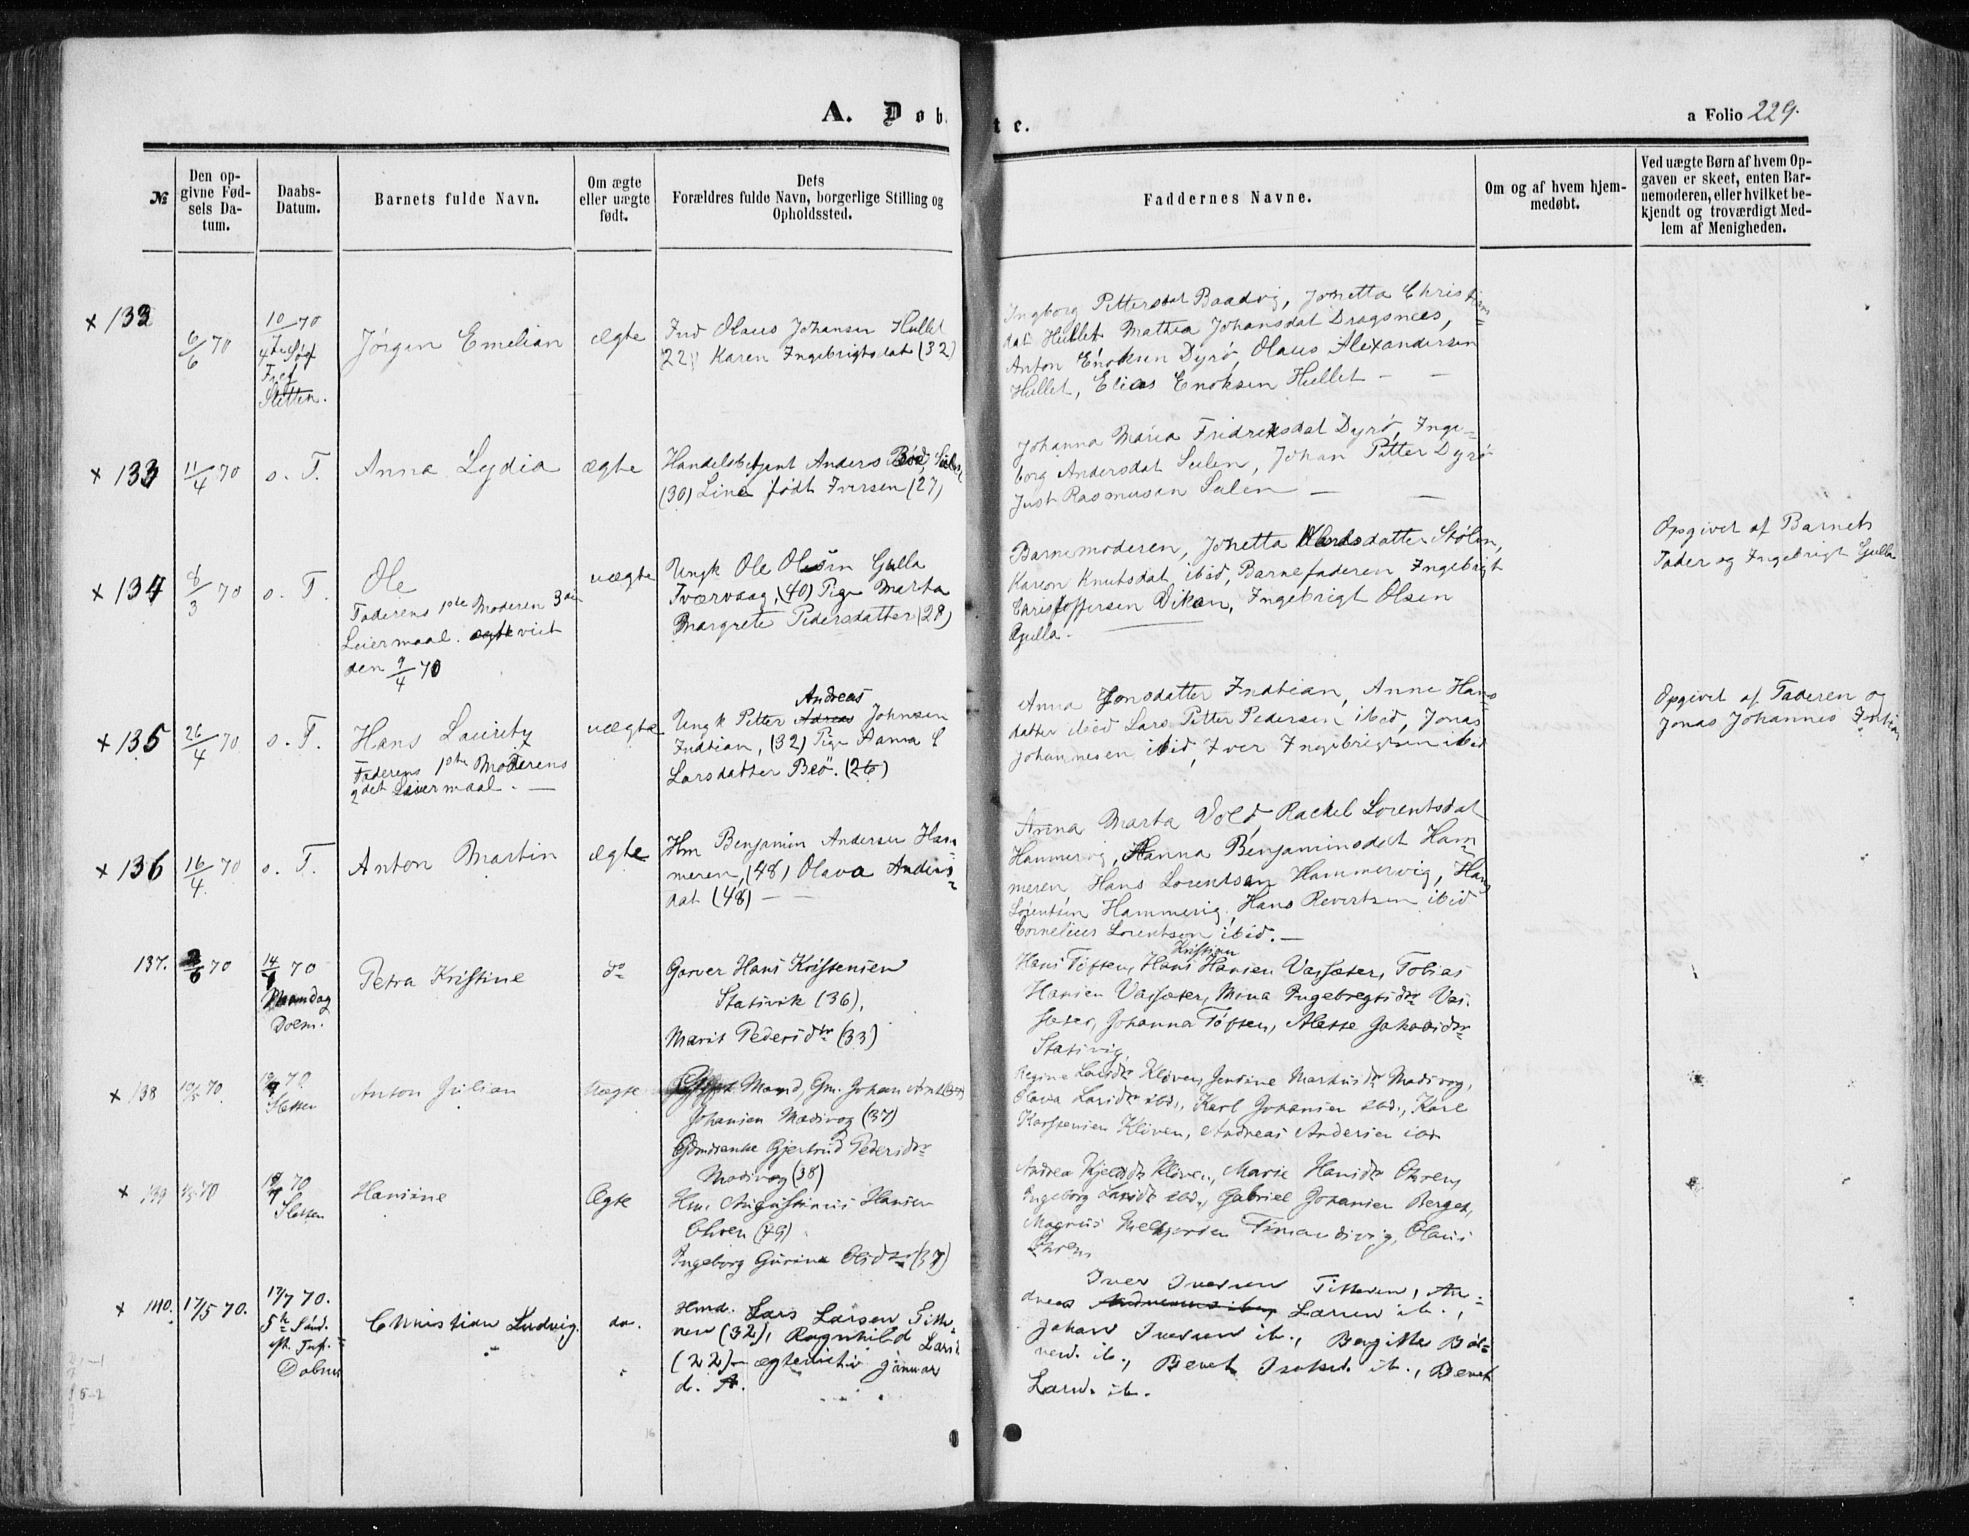 A. Døb
te.
a Folio 229.
№
Den op-
givne Fød-
sels Da-
tum.
Daabs-
Datum.
Barnets fulde Navn.
Om ægte
eller uægte
født.
Dets
Forældres fulde Navn, borgerlige Stilling og
Opholdssted.
Faddernes Navne.
Om og af hvem hjem-
medøbt.
Ved uægte Børn af hvem Op-
gaven er skeet, enten Bar-
nemoderen, eller hvilket be-
kjendt og troværdigt Med-
lem af Menigheden.
× 132
6/6 70
10/ 70
Sletten.
Jørgen Emelian
ægte
Ind Olaus Johansen Hullet
22, Karen Ingebrigtsdat (32)
Ingborg Pittersdat Baadvig, Jonetta Chris
dat Hullet Mathea Johansdat Dragsnees,
Anton Enoksen Dyrø, Olaus Alexandersen
Hullet, Elias Enoksen Hullet
× 133
11/4 70
s. T.
Anna Lydia
ægte
Handelsbetjent Anders
(30) Line født Iversen (27)
Johanna Maria Fridriksdat Dyrø, Inge-
borg Andersdat Sulen, Johan Pitter Dyrø
Just Rasmusen Sulen
× 134
8/3 70
s. T.
Ole
Faderens 1ste Moderen 3die
Leiermaal. viet
den 9/4 70
uægte
Ungk Ole Olsen Gulla
Tværvaag, (40) Pige Marta
Margrete Pedersdatter (28)
Barnemoderen, Jonetta datter Stølen,
Karen Knutsdat ibid, Barnefaderen Ingebrigt
Christoffersen Viken, Ingebrigt Olsen
Gulla.
Opgivet af Barnets
Fader og Ingebrigt Gulla
× 135
26/4 70
s. T.
Hans Lauritz
Faderens 1ste Moderens
2det Leiermaal.
uægte
Andreas
Ungk Pitter Adreas Johnsen
Indtian, (32) Pige Anna
Larsdatter Beø. (26)
Anna Jonsdatter Indtian, Anne Hans
datter ibid Lars Pitter Pedersen ibid, Jonas
Johannesen ibid, Iver Ingebrigtsen ibid
Opgivet af Faderen og
Jonas Johannes Indtian
× 136
16/4 70
s. T.
Anton Martin
ægte
Hm Benjamin Andersen Ham
meren, (48) Olava Anders-
dat (48)
Anna Marta Vold, Rachel Lorentsdat
Hammervig, Hanna Benjaminsdat Ham
meren Hans Lorentsen Hammervig, Hans
Lorentsen Hammervig, Hans Revertsen ibid
Cornelius Lorentsen ibid.
137.
70
14/ 70
Petra Kristine
do
Garver Hans Kristensen
Stativik (36),
Marit Pedersdtr (33)
Kristian
Hans Tøften, Hans Hansen Vassæter, Tobias
Hansen Vassæter, Mona Ingebregtsdr Vas-
sæter, Johanna Tøften, Alette Jakobsdr
Stativig
× 138
10/5 70
70
Anton Julian
Uægte
Mand, Gm. Johan
Johansen Madsvog (37)
Gjertrud Pedersdr
Madsvog (38)
Regine Larsdr Kløven, Martinsdr Madsvog,
Olava Larsdr ibd., Karl Johansen ibd., Karl
Karstensen Kløven, Andreas Andersen ibd
× 139
70
70
Sletten
Hansine
Ægte
Hm. Augustinus Hansen
Ohren (49)
Ingeborg Gurine Olsdtr (37)
Andrea Kløven, Marie Hansdr Ohren,
Ingeborg Larsdr ibd., Gabriel Johansen Berget,
Magnus Timandsvig, Olaus
Ohren
× 140.
17/5 70.
17/7 70.
5te Sønd.
eft. Tref.
Christian Ludvig.
do.
Hmd. Lars Larsen Titte-
nen (32), Ragnhild Larsd
(22) januar
d. A.
Iver Iversen Titteren, An-
dreas Larsen ib.,
Johan Iversen ib., Bergitte
ib., Beret ib., Beret
Larsd. ib.